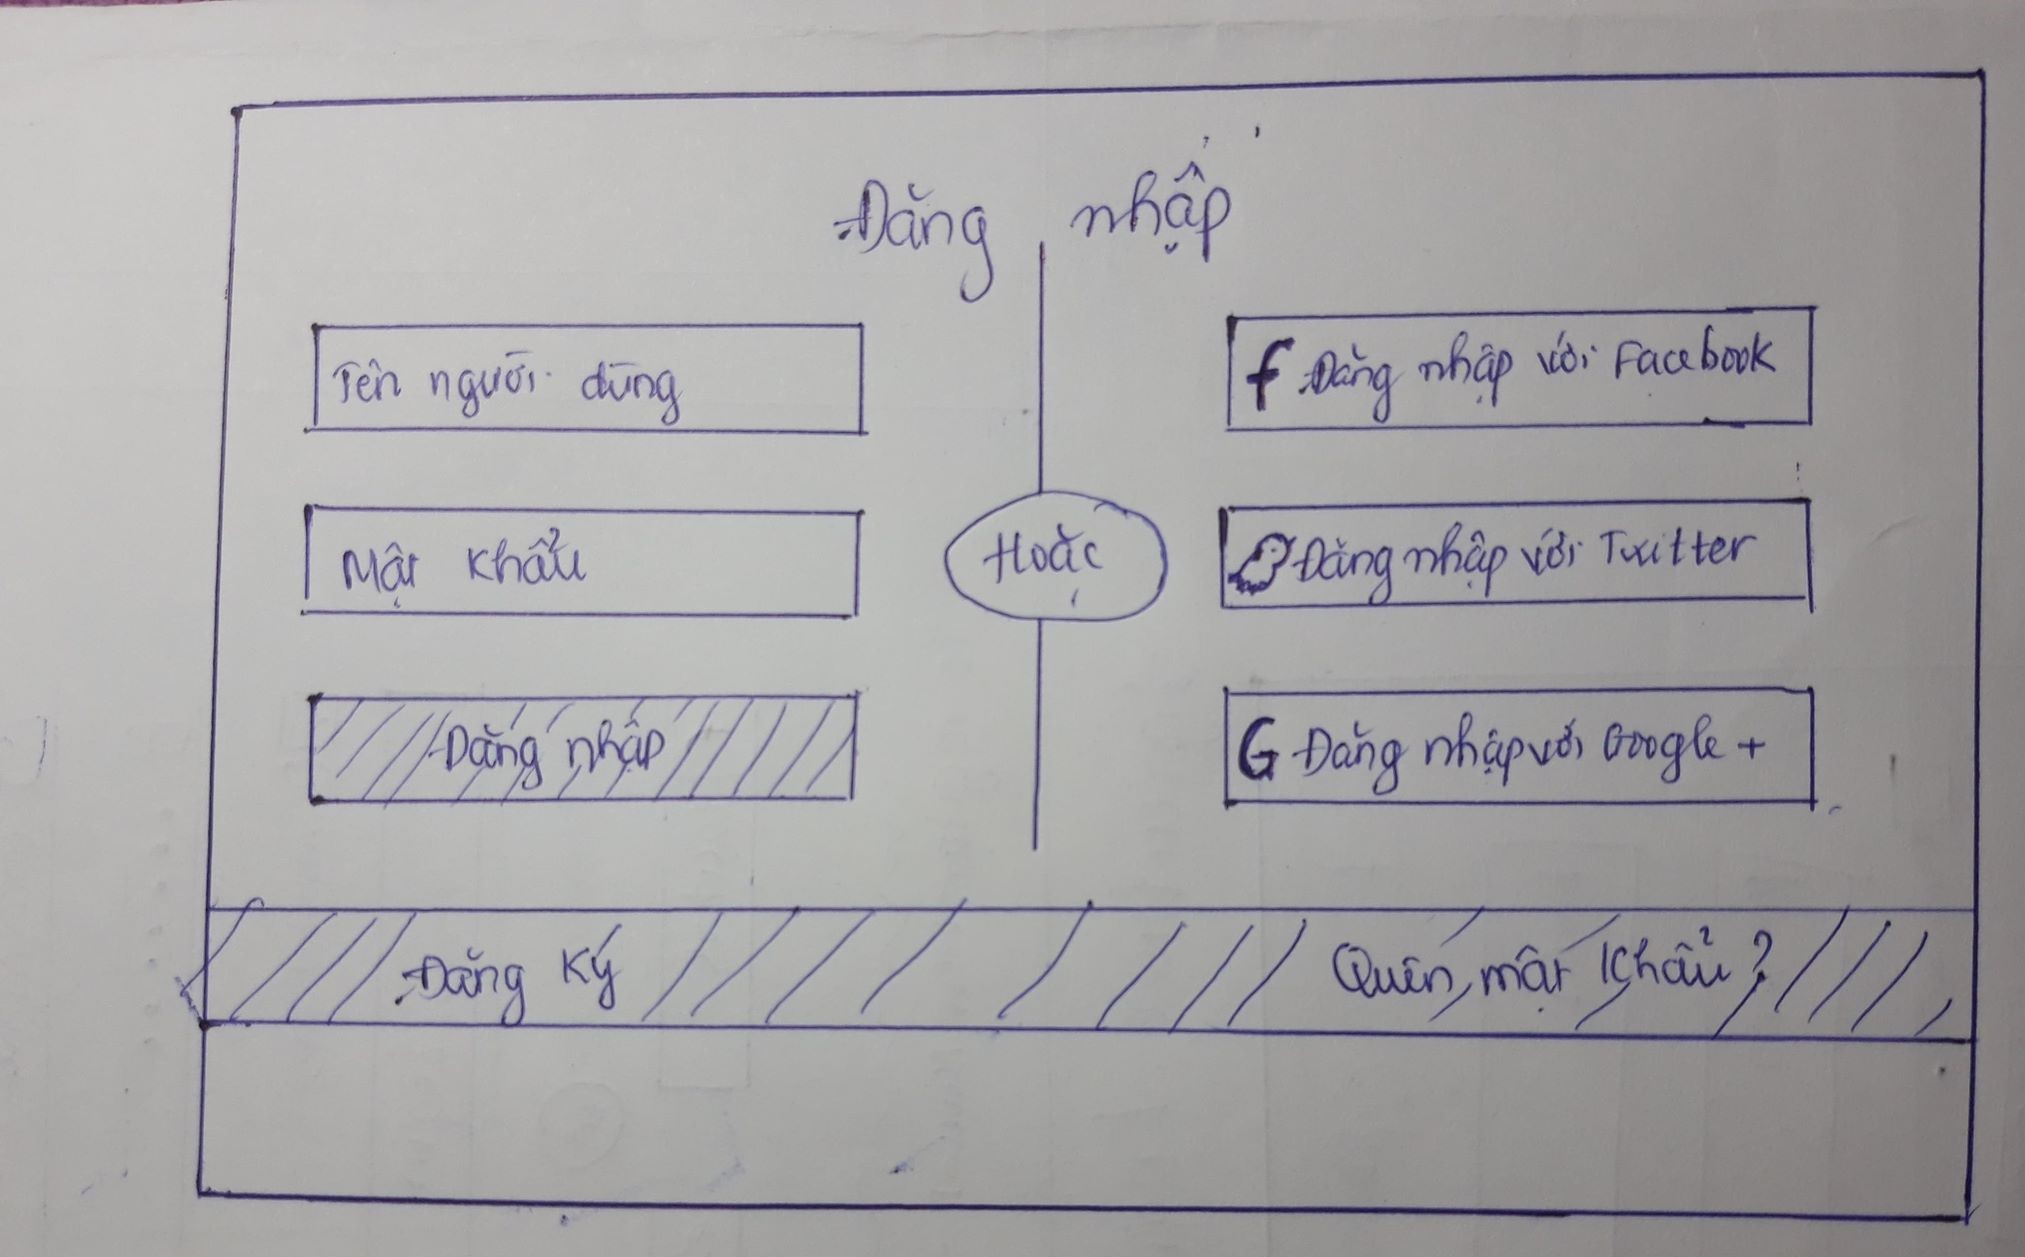 Đăng nhập
Tên người dùng
Mật khẩu
Đăng nhập
Hoặc
f Đăng nhập với Facebook
Đăng nhập với Twitter
G Đăng nhập với Google +
Đăng ký
Quên mật khẩu?